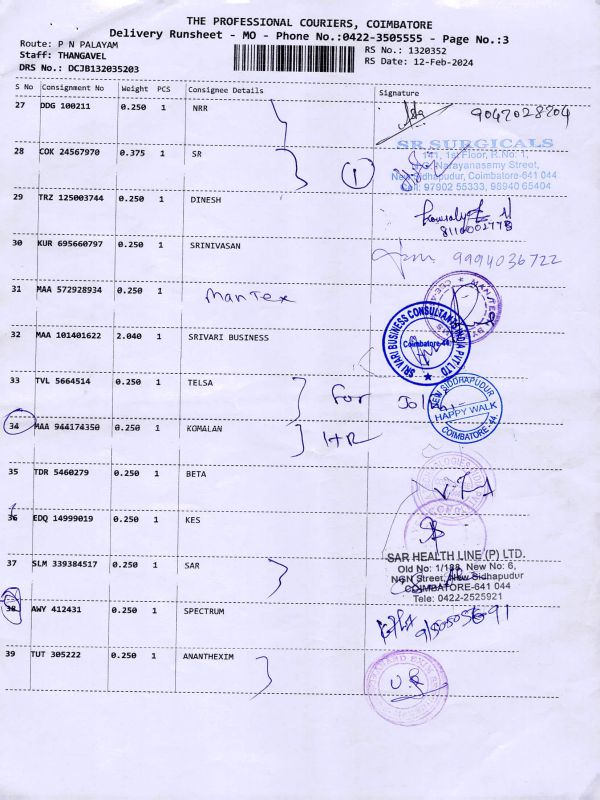 THE PROFESSIONAL COURIERS, COIMBATORE
Delivery Runsheet - MO - Phone No.:0422-3505555 - Page No.:3
Route: P N PALAYAM
RS No.: 1320352
Staff: THANGAVEL
RS Date: 12-Feb-2024
DRS No.: DCJB132035203
S No Consignment No Weight PCS Consignee Details Signature
27 DDG 100211 0.250 1 NRR
28 COK 24567970 0.375 1 SR 1
SR SURGICALS
141, 1st Floor, R.No. 1,
Narayanasamy Street,
New Sidhapudur, Coimbatore-641 044
Cell: 97902 55333, 98940 65404
29 TRZ 125003744 0.250 1 DINESH
30 KUR 695660797 0.250 1 SRINIVASAN 9994036722
31 MAA 572928934 0.250 1 Mantex
32 MAA 101401622 2.040 1 SRIVARI BUSINESS
SRI VARI BUSINESS CONSULTANTS INDIA PVT LTD
Coimbatore-44
33 TVL 5664514 0.250 1 TELSA For
NEW SIDDHAPUDUR
HAPPY WALK
COIMBATORE - 44
34 MAA 944174350 0.250 1 KOMALAN
35 TDR 5460279 0.250 1 BETA
36 EDQ 14999019 0.250 1 KES
SAR HEALTH LINE (P) LTD.
Old No: 1/188, New No: 6,
NGN Street, New Sidhapudur
COIMBATORE-641 044
Tele: 0422-2525921
37 SLM 339384517 0.250 1 SAR
38 AWY 412431 0.250 1 SPECTRUM
39 TUT 305222 0.250 1 ANANTHEXIM